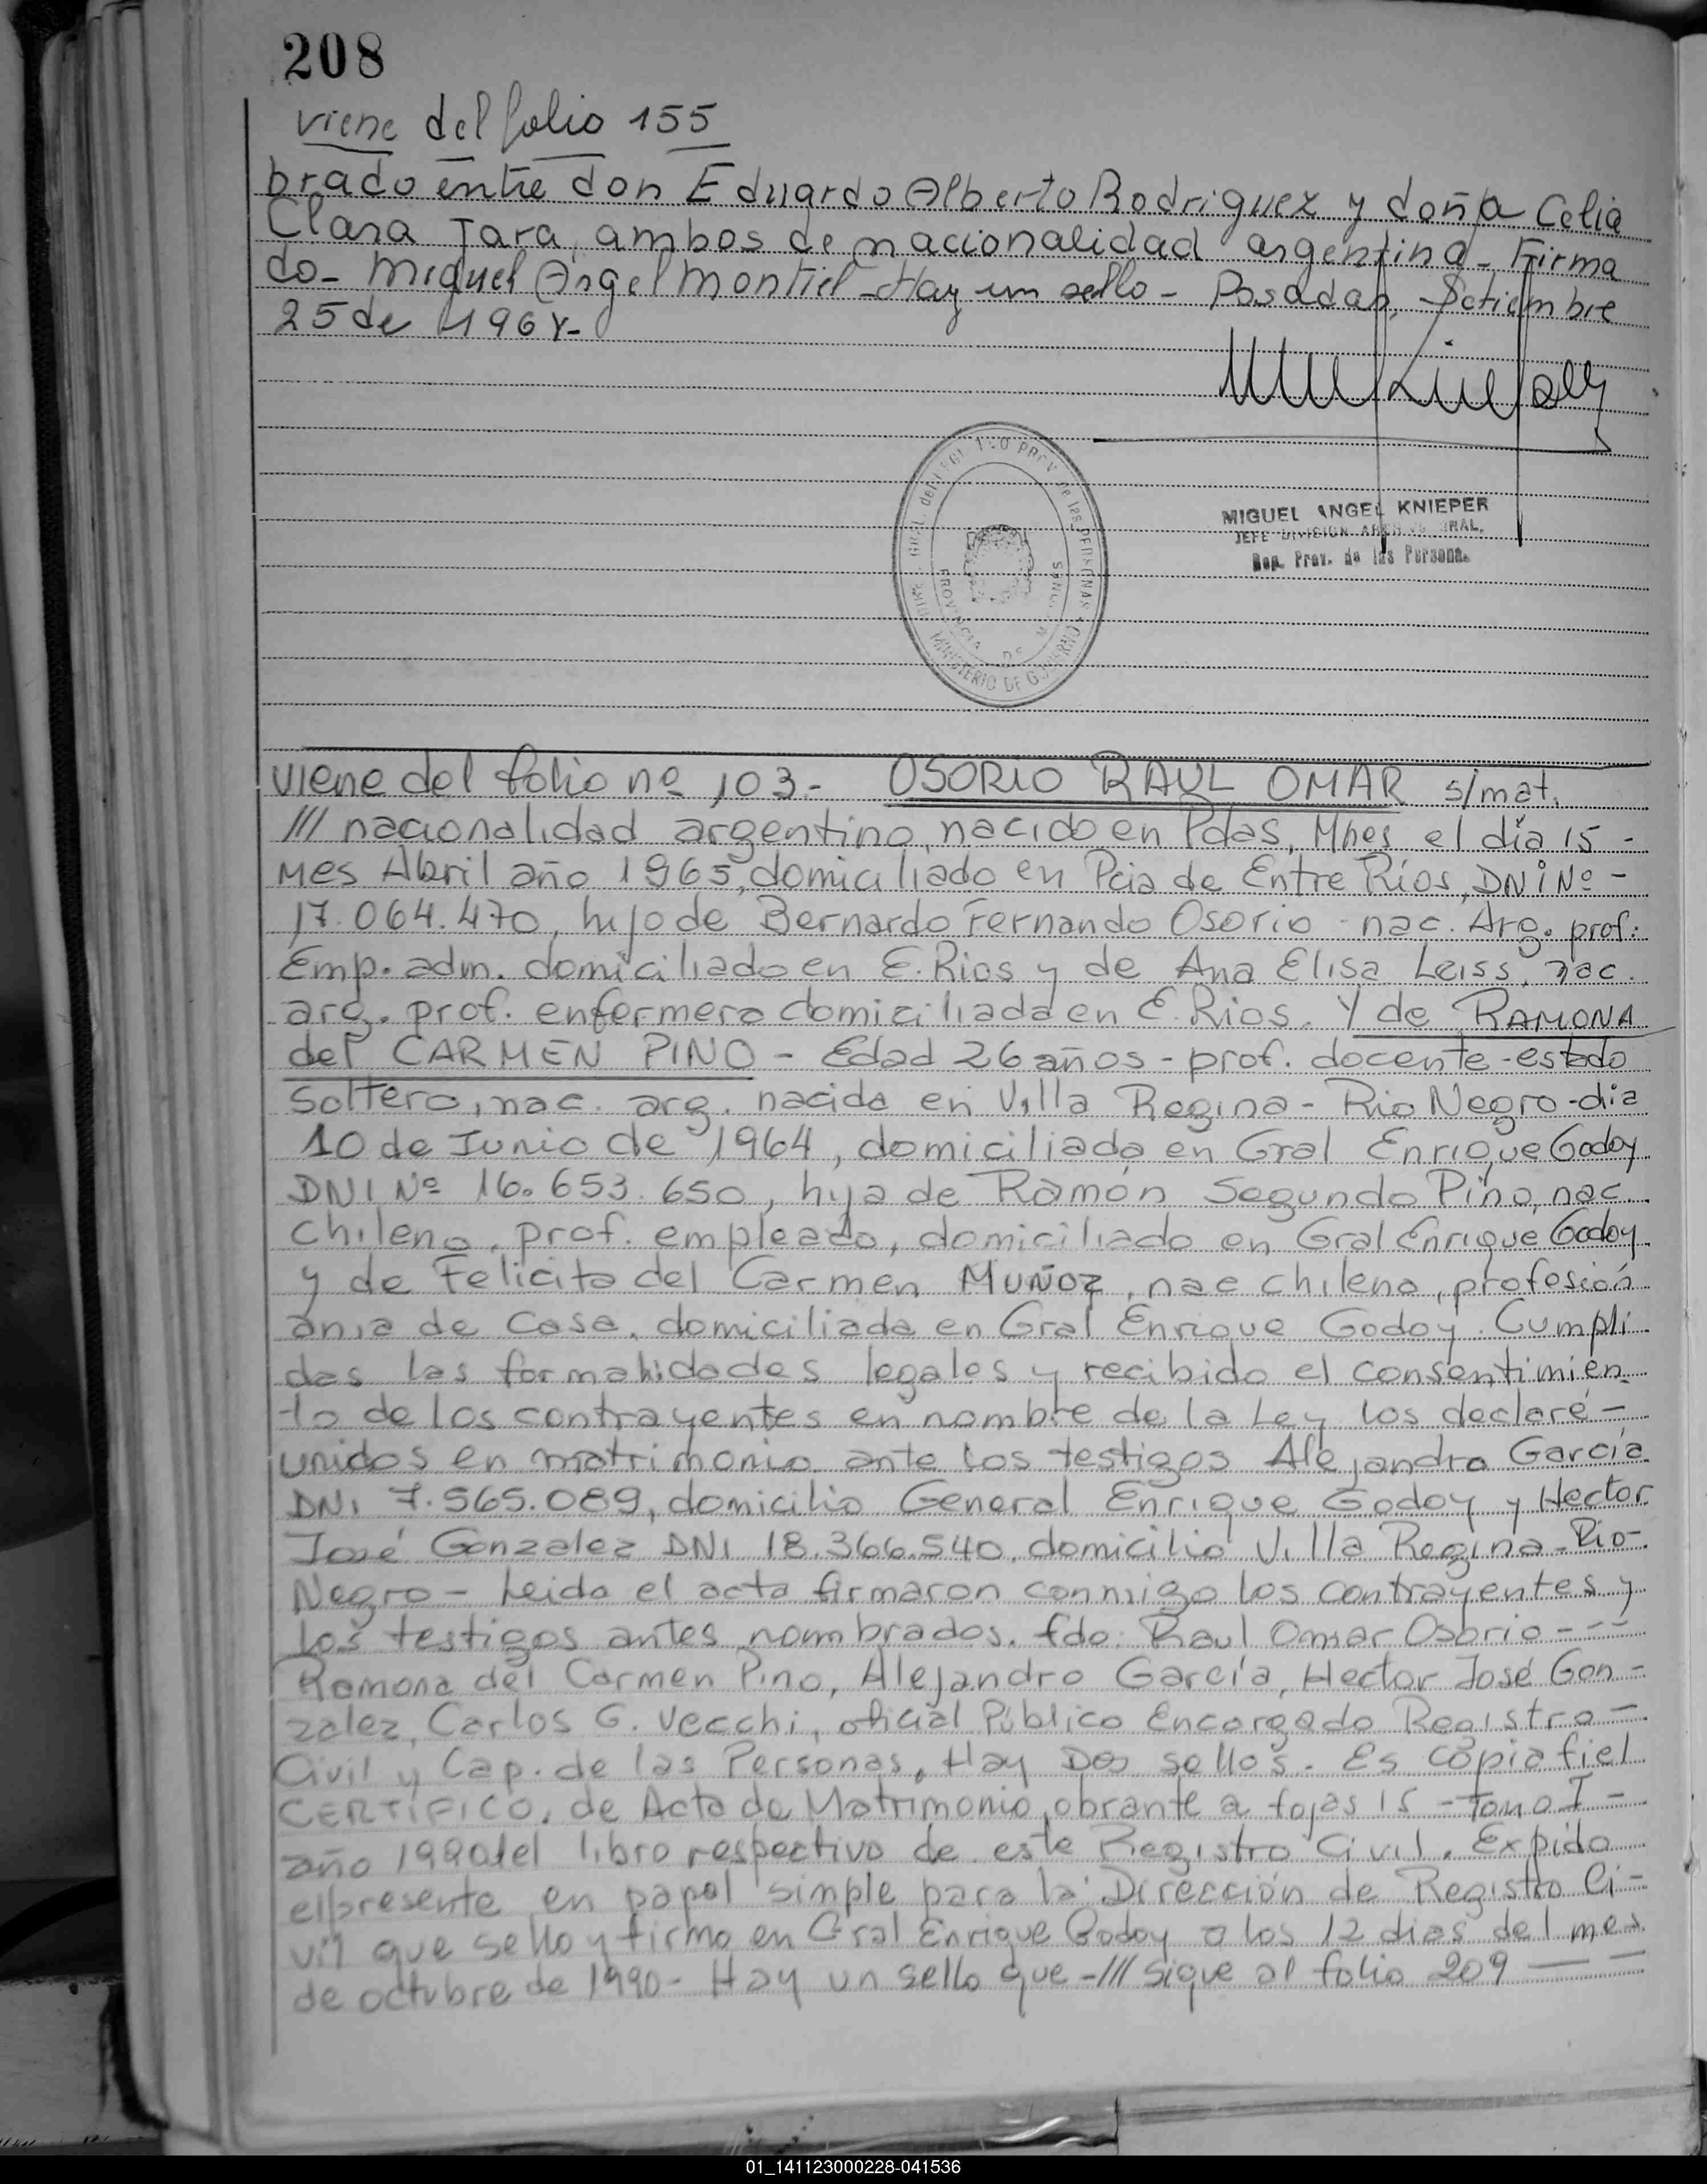 208
viene del folio 155
brado entre don Eduardo Alberto Rodriguez y doña Celia
Clara Jara, ambos de nacionalidad argentina - Firma
do - Miguel Angel Montiel - Hay un sello - Posadas, Setiembre
25 de 196
MIGUEL ANGEL KNIEPER
JEFE DIVISION ARCH. GRAL.
Reg. Prov. de las Persona.
PROVINCIA DE
MINISTERIO DE GOBIERNO
viene del folio nº 103.- OSORIO RAUL OMAR s/mat.
/// nacionalidad argentino, nacido en Pdas, Mnes el día 15 -
Mes Abril año 1965, domiciliado en Pcia de Entre Ríos, DNI Nº -
17.064.470, hijo de Bernardo Fernando Osorio - nac. Arg. prof:
Emp. adm. domiciliado en E. Rios y de Ana Elisa Leiss, nac.
arg. prof. enfermera domiciliada en E. Rios. Y de RAMONA
del CARMEN PINO - Edad 26 años - prof. docente - estado
Soltero, nac. arg. nacida en Villa Regina - Rio Negro - dia
10 de Junio de 1964, domiciliada en Gral Enrique Godoy
DNI Nº 16.653.650, hija de Ramón Segundo Pino, nac.
Chileno, prof. empleado, domiciliado en Gral Enrique Godoy
y de Felicita del Carmen MUÑOZ, nac chilena, profesión
ama de casa, domiciliada en Gral Enrique Godoy. Cumpli
das las formalidades legales y recibido el consentimien
to de los contrayentes en nombre de la Ley los declaré -
unidos en matrimonio ante los testigos Alejandro García
DNI 7.565.089, domicilio General Enrique Godoy y Hector
José Gonzalez DNI 18.366.540, domicilio Villa Regina - Rio -
Negro - Leida el acta firmaron conmigo los contrayentes y
los testigos antes nombrados. fdo: Raul Omar Osorio - - -
Ramona del Carmen Pino, Alejandro García, Hector José Gon -
zalez, Carlos G. Vecchi, oficial Público Encargado Registro -
Civil y Cap. de las Personas, Hay Dos sellos. Es copia fiel
CERTIFICO, de Acta de Matrimonio, obrante a fojas 15 - Tomo I -
año 1990 del libro respectivo de este Registro Civil. Expido
el presente en papel simple para la Dirección de Registro Ci -
vil que sello y firmo en Gral Enrique Godoy a los 12 dias del mes
de octubre de 1990 - Hay un sello que -/// sigue al folio 209 — —
01_141123000228-041536